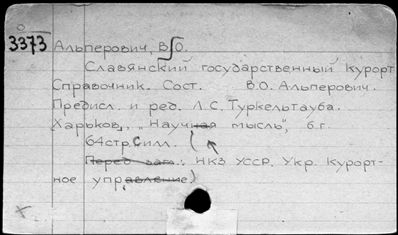 3373
Альперович, В.О.
Славянский государственный курорт
Справочник. Сост. В.О. Альперович.
Предисл. и ред. Л.С. Туркельтауба.
Харьков, „Научная мысль", б.г.
64стр. с илл. (
Перед заг.: НКЗ УССР. Укр. Курорт-
ное управление)